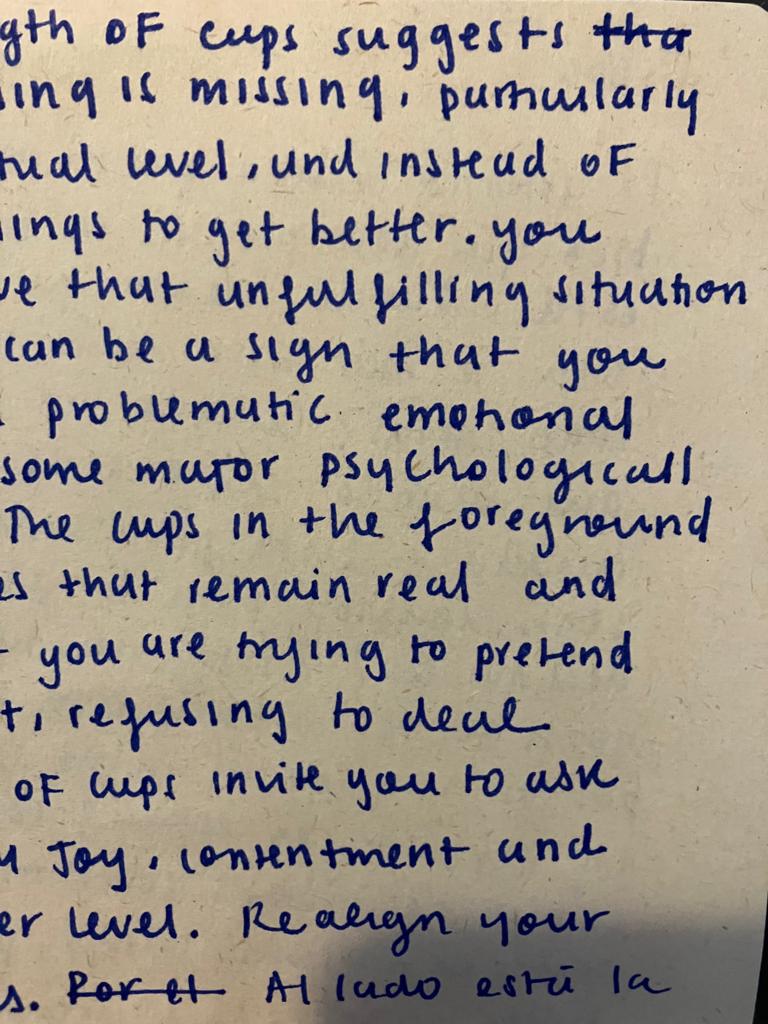 gth OF cups suggests tha
ing is missing, particularly
tual level, und instead OF
ings to get better. you
ve that unfulfilling situation
can be a sign that you
problematic emotional
some major psychologicall
The cups in the foreground
es that remain real and
you are trying to pretend
t, refusing to deal
OF cups invite you to ask
Joy, contentment and
er level. Realign your
s. Por el Al lado está la